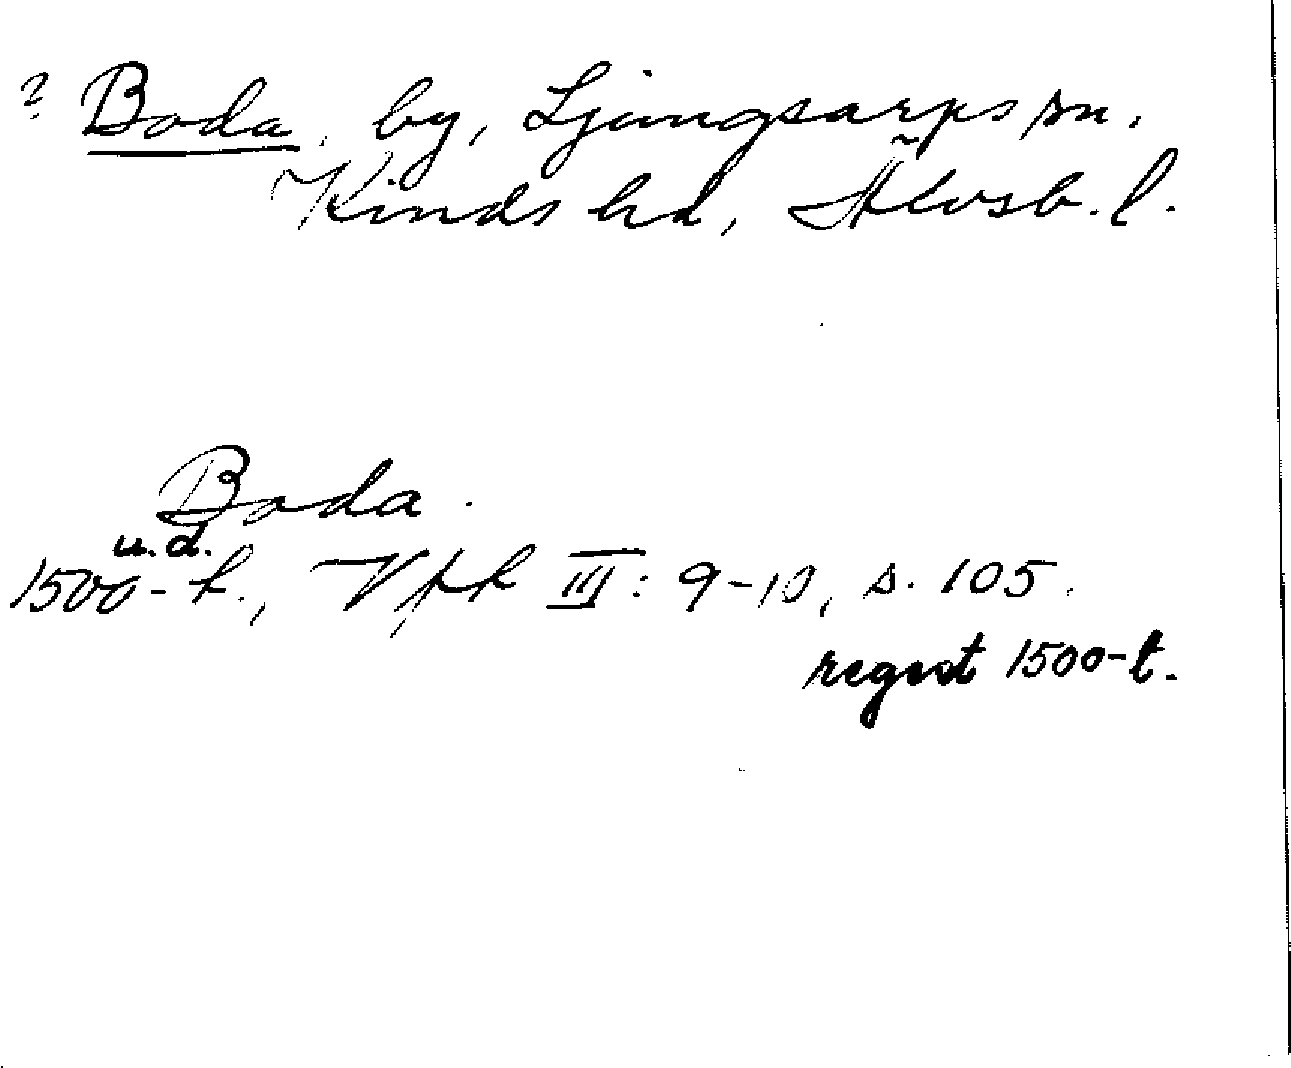 ? Boda, by, Ljungsarps sn,
Kinds hd, Älvsb. l.
Boda.
u.d.
1500-t., Vfk III: 9-10, s. 105.
regest 1500-t.